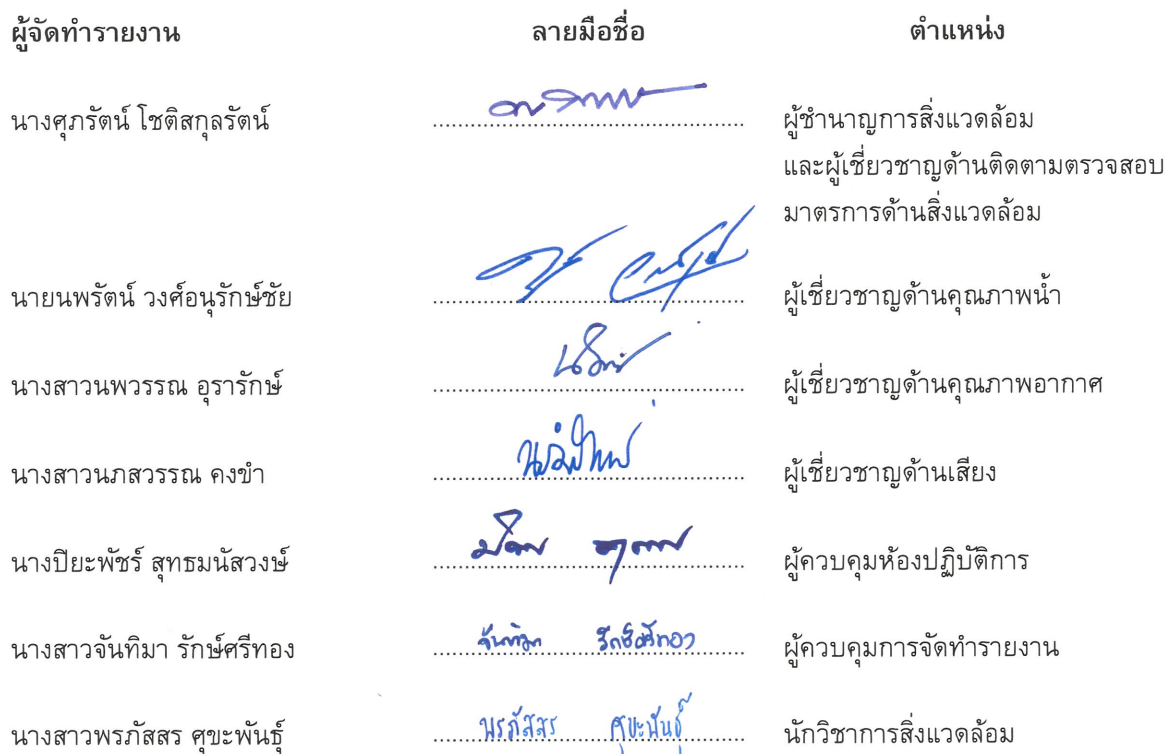 ผู้จัดทำรายงาน ลายมือชื่อ ตำแหน่ง
นางศุภรัตน์ โชติสกุลรัตน์ ผู้ชำนาญการสิ่งแวดล้อม
และผู้เชี่ยวชาญด้านติดตามตรวจสอบ
มาตรการด้านสิ่งแวดล้อม
นายนพรัตน์ วงศ์อนุรักษ์ชัย ผู้เชี่ยวชาญด้านคุณภาพน้ำ
นางสาวนพวรรณ อุรารักษ์ ผู้เชี่ยวชาญด้านคุณภาพอากาศ
นางสาวนภสวรรณ คงขำ ผู้เชี่ยวชาญด้านเสียง
นางปิยะพัชร์ สุทธมนัสวงษ์ ผู้ควบคุมห้องปฏิบัติการ
นางสาวจันทิมา รักษ์ศรีทอง จันทิมา รักษ์ศรีทอง ผู้ควบคุมการจัดทำรายงาน
นางสาวพรภัสสร ศุขะพันธุ์ พรภัสสร ศุขะพันธุ์ นักวิชาการสิ่งแวดล้อม